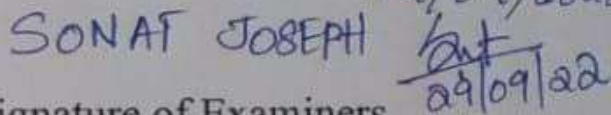 SONAT JOSEPH
29/09/22
Signature of Examiners